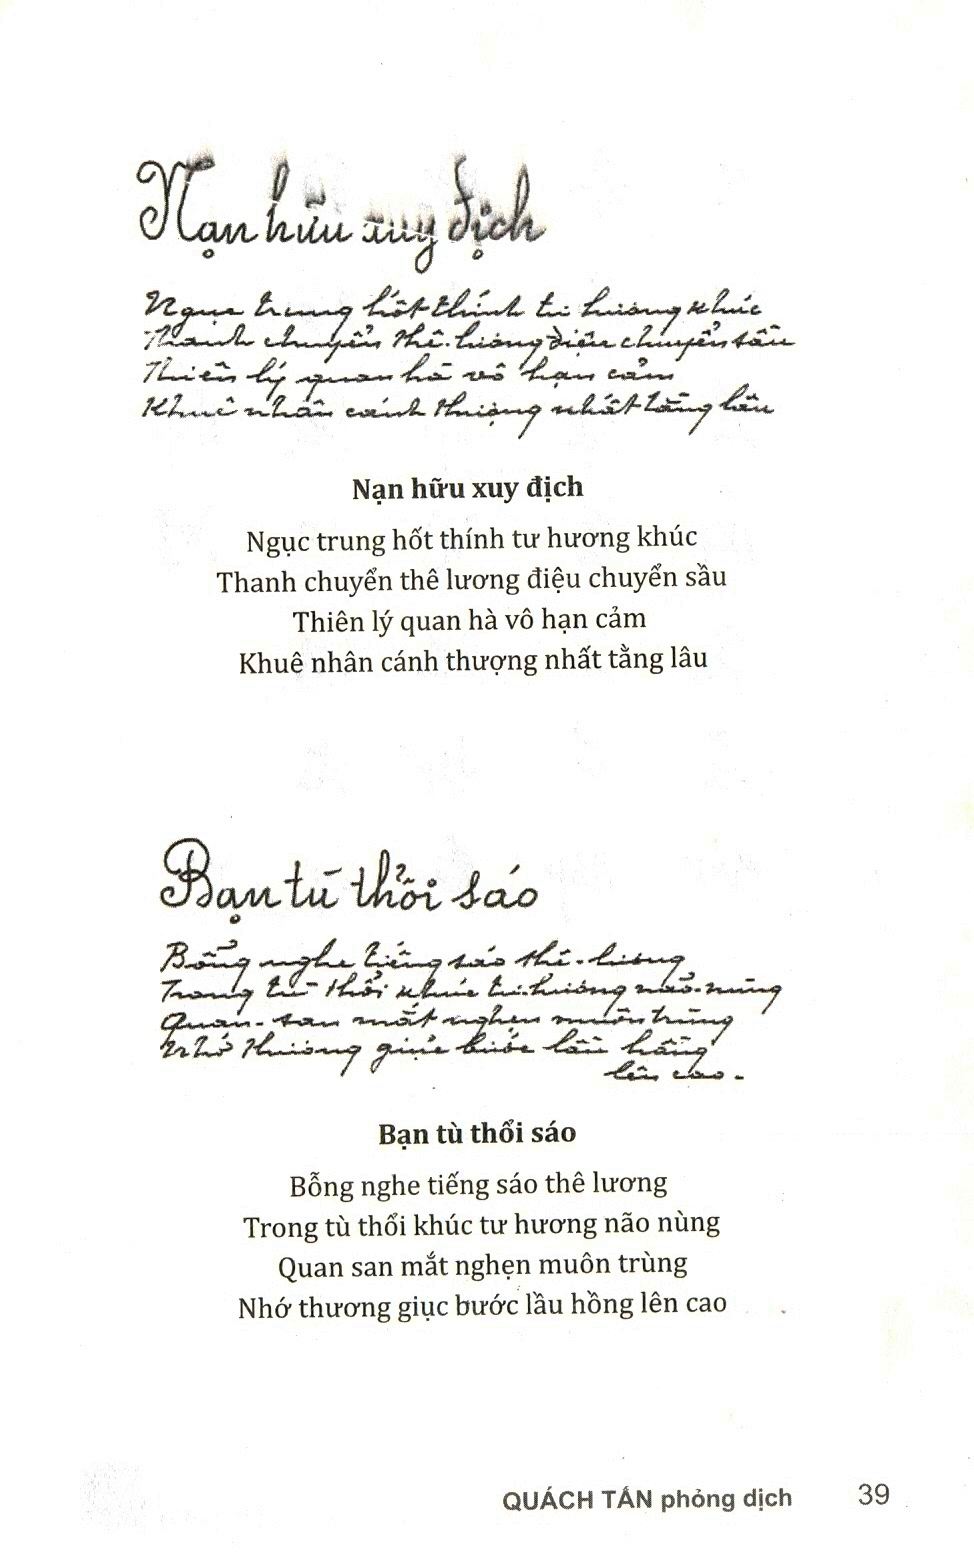 Nạn hữu xuy địch
Ngục trung hốt thính tư hương khúc
Thanh chuyển thê-lương điệu chuyển sầu
Thiên lý quan hà vô hạn cảm
Khuê nhân cánh thượng nhất tằng lâu
Nạn hữu xuy địch
Ngục trung hốt thính tư hương khúc
Thanh chuyển thê lương điệu chuyển sầu
Thiên lý quan hà vô hạn cảm
Khuê nhân cánh thượng nhất tằng lâu
Bạn tù thổi sáo
Bỗng nghe tiếng sáo thê-lương
Trong tù thổi khúc tư-hương não-nùng
Quan-san mắt nghẹn muôn trùng
Nhớ thương giục bước lầu hồng
lên cao.
Bạn tù thổi sáo
Bỗng nghe tiếng sáo thê lương
Trong tù thổi khúc tư hương não nùng
Quan san mắt nghẹn muôn trùng
Nhớ thương giục bước lầu hồng lên cao
QUÁCH TẤN phỏng dịch 39